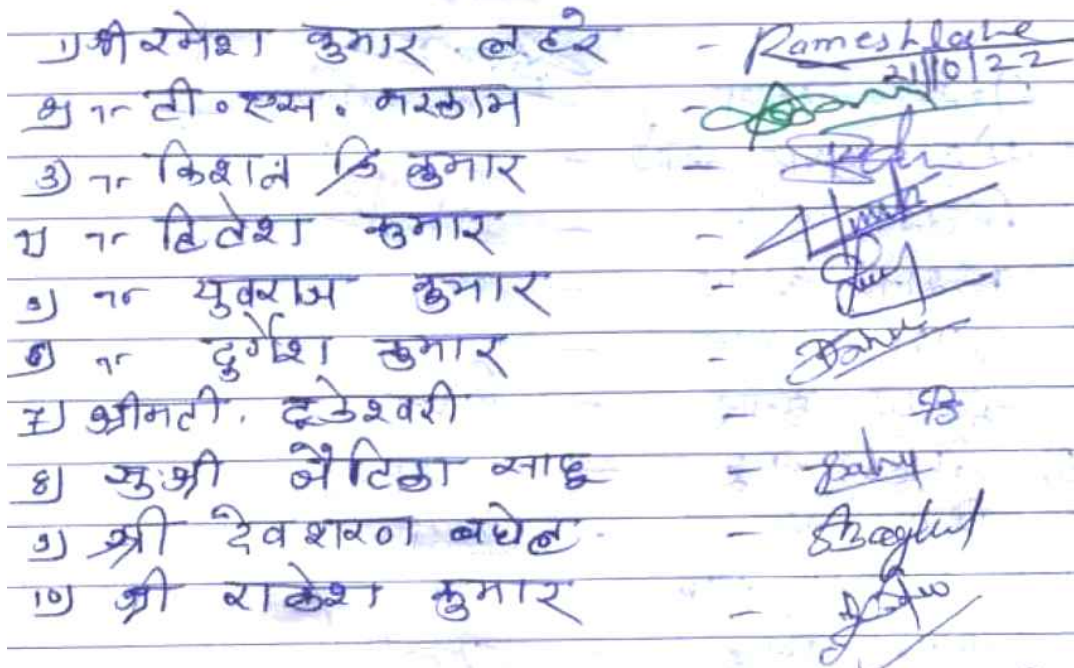 1) श्री रमेश कुमार लहरे - Ramesh lahe
21/10/22
2) -॥- टी. एस. मरकाम -
3) -॥- किशन कुमार -
4) -॥- हितेश कुमार -
5) -॥- युवराज कुमार -
6) -॥- दुर्गेश कुमार - Sahu
7) श्रीमती. दडेश्वरी -
8) सुश्री साहू - Sahu
9) श्री देवशरण बघेल - SBaghel
10) श्री राकेश कुमार -